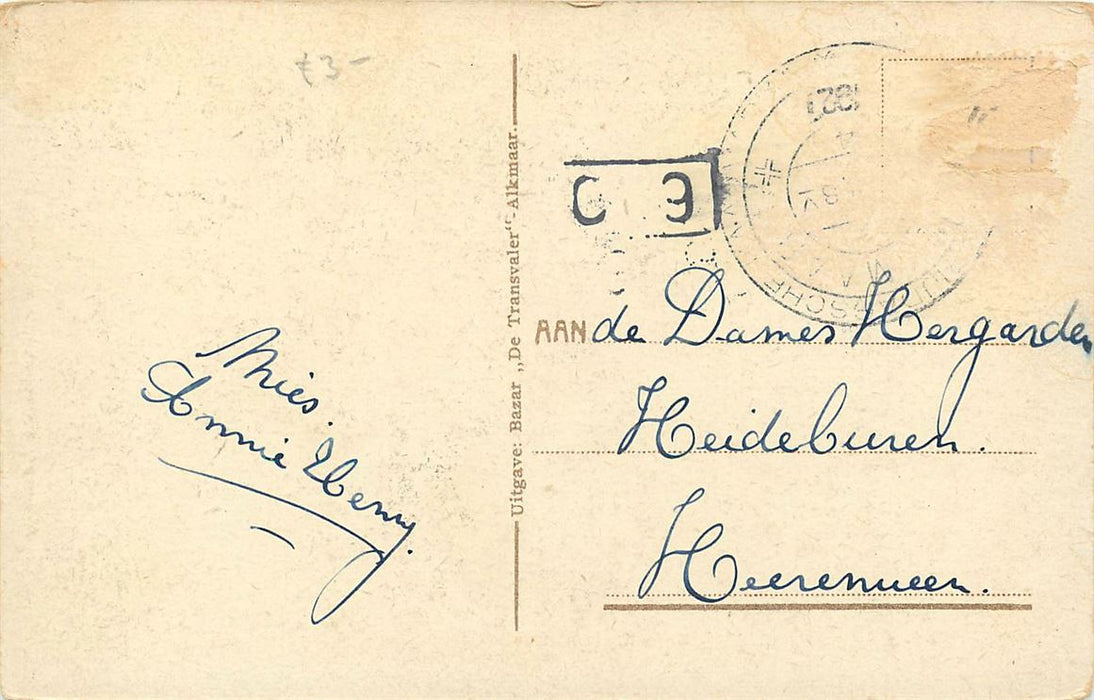 £3-
1927
C E
AAN de Dames Hergarden
Heideburen.
Heerenveen.
Mies.
Annie Henny.
Uitgave: Bazar „De Transvaler“-Alkmaar.